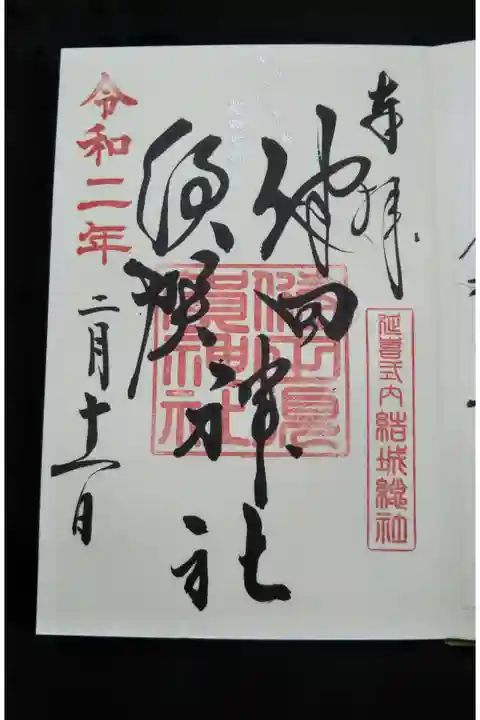 奉拝
延喜式内 結城總社
健田神社
須賀神社
健田須賀神社
令和二年
二月十一日